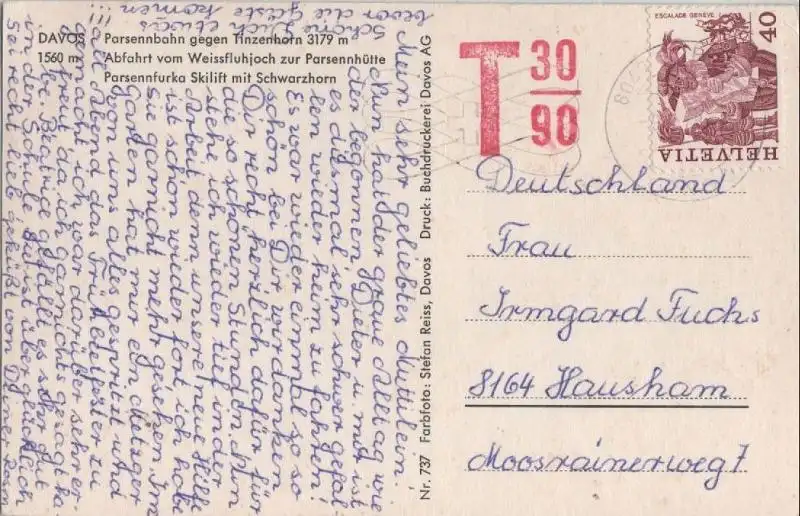 DAVOS Parsennbahn gegen Tinzenhorn 3179 m
1560 m Abfahrt vom Weissfluhjoch zur Parsennhütte
Parsennfurka Skilift mit Schwarzhorn
Mein sehr geliebtes Muttilein.
Nun hat der graue Alltag wie
der begonnen. Dieter u. mir ist
es diesmal sehr schwer gefal
len wieder heim zu fahren!
Es war wieder einmal so so
schön bei Dir wir danken
Dir recht herzlich dafür, für
die so schönen Stunden. Nun
stehe ich wieder tief in der
Arbeit denn unsere neue Hilfe
ist schon wieder fort ich habe
Sie garnicht mehr gesehen. Im
Garten hat mir ein Metzger
von uns alles gespritzt und
all Abend das Frühbeetfenster zu
gemacht ich war darüber sehr er-
freut da ich garnichts gesagt ha-
be. Beatrice gefällt es sehr gut
in der Schule
Sei recht lieb geküßt von Deiner
Schöne Dich etwas
bevor die Gäste kommen !!!
Nr. 737 Farbfoto: Stefan Reiss, Davos Druck: Buchdruckerei Davos AG
T 30
90
ESCALADE GENEVE
40
HELVETIA
Deutschland
Frau
Irmgard Fuchs
8164 Hausham
Moosrainerweg 7